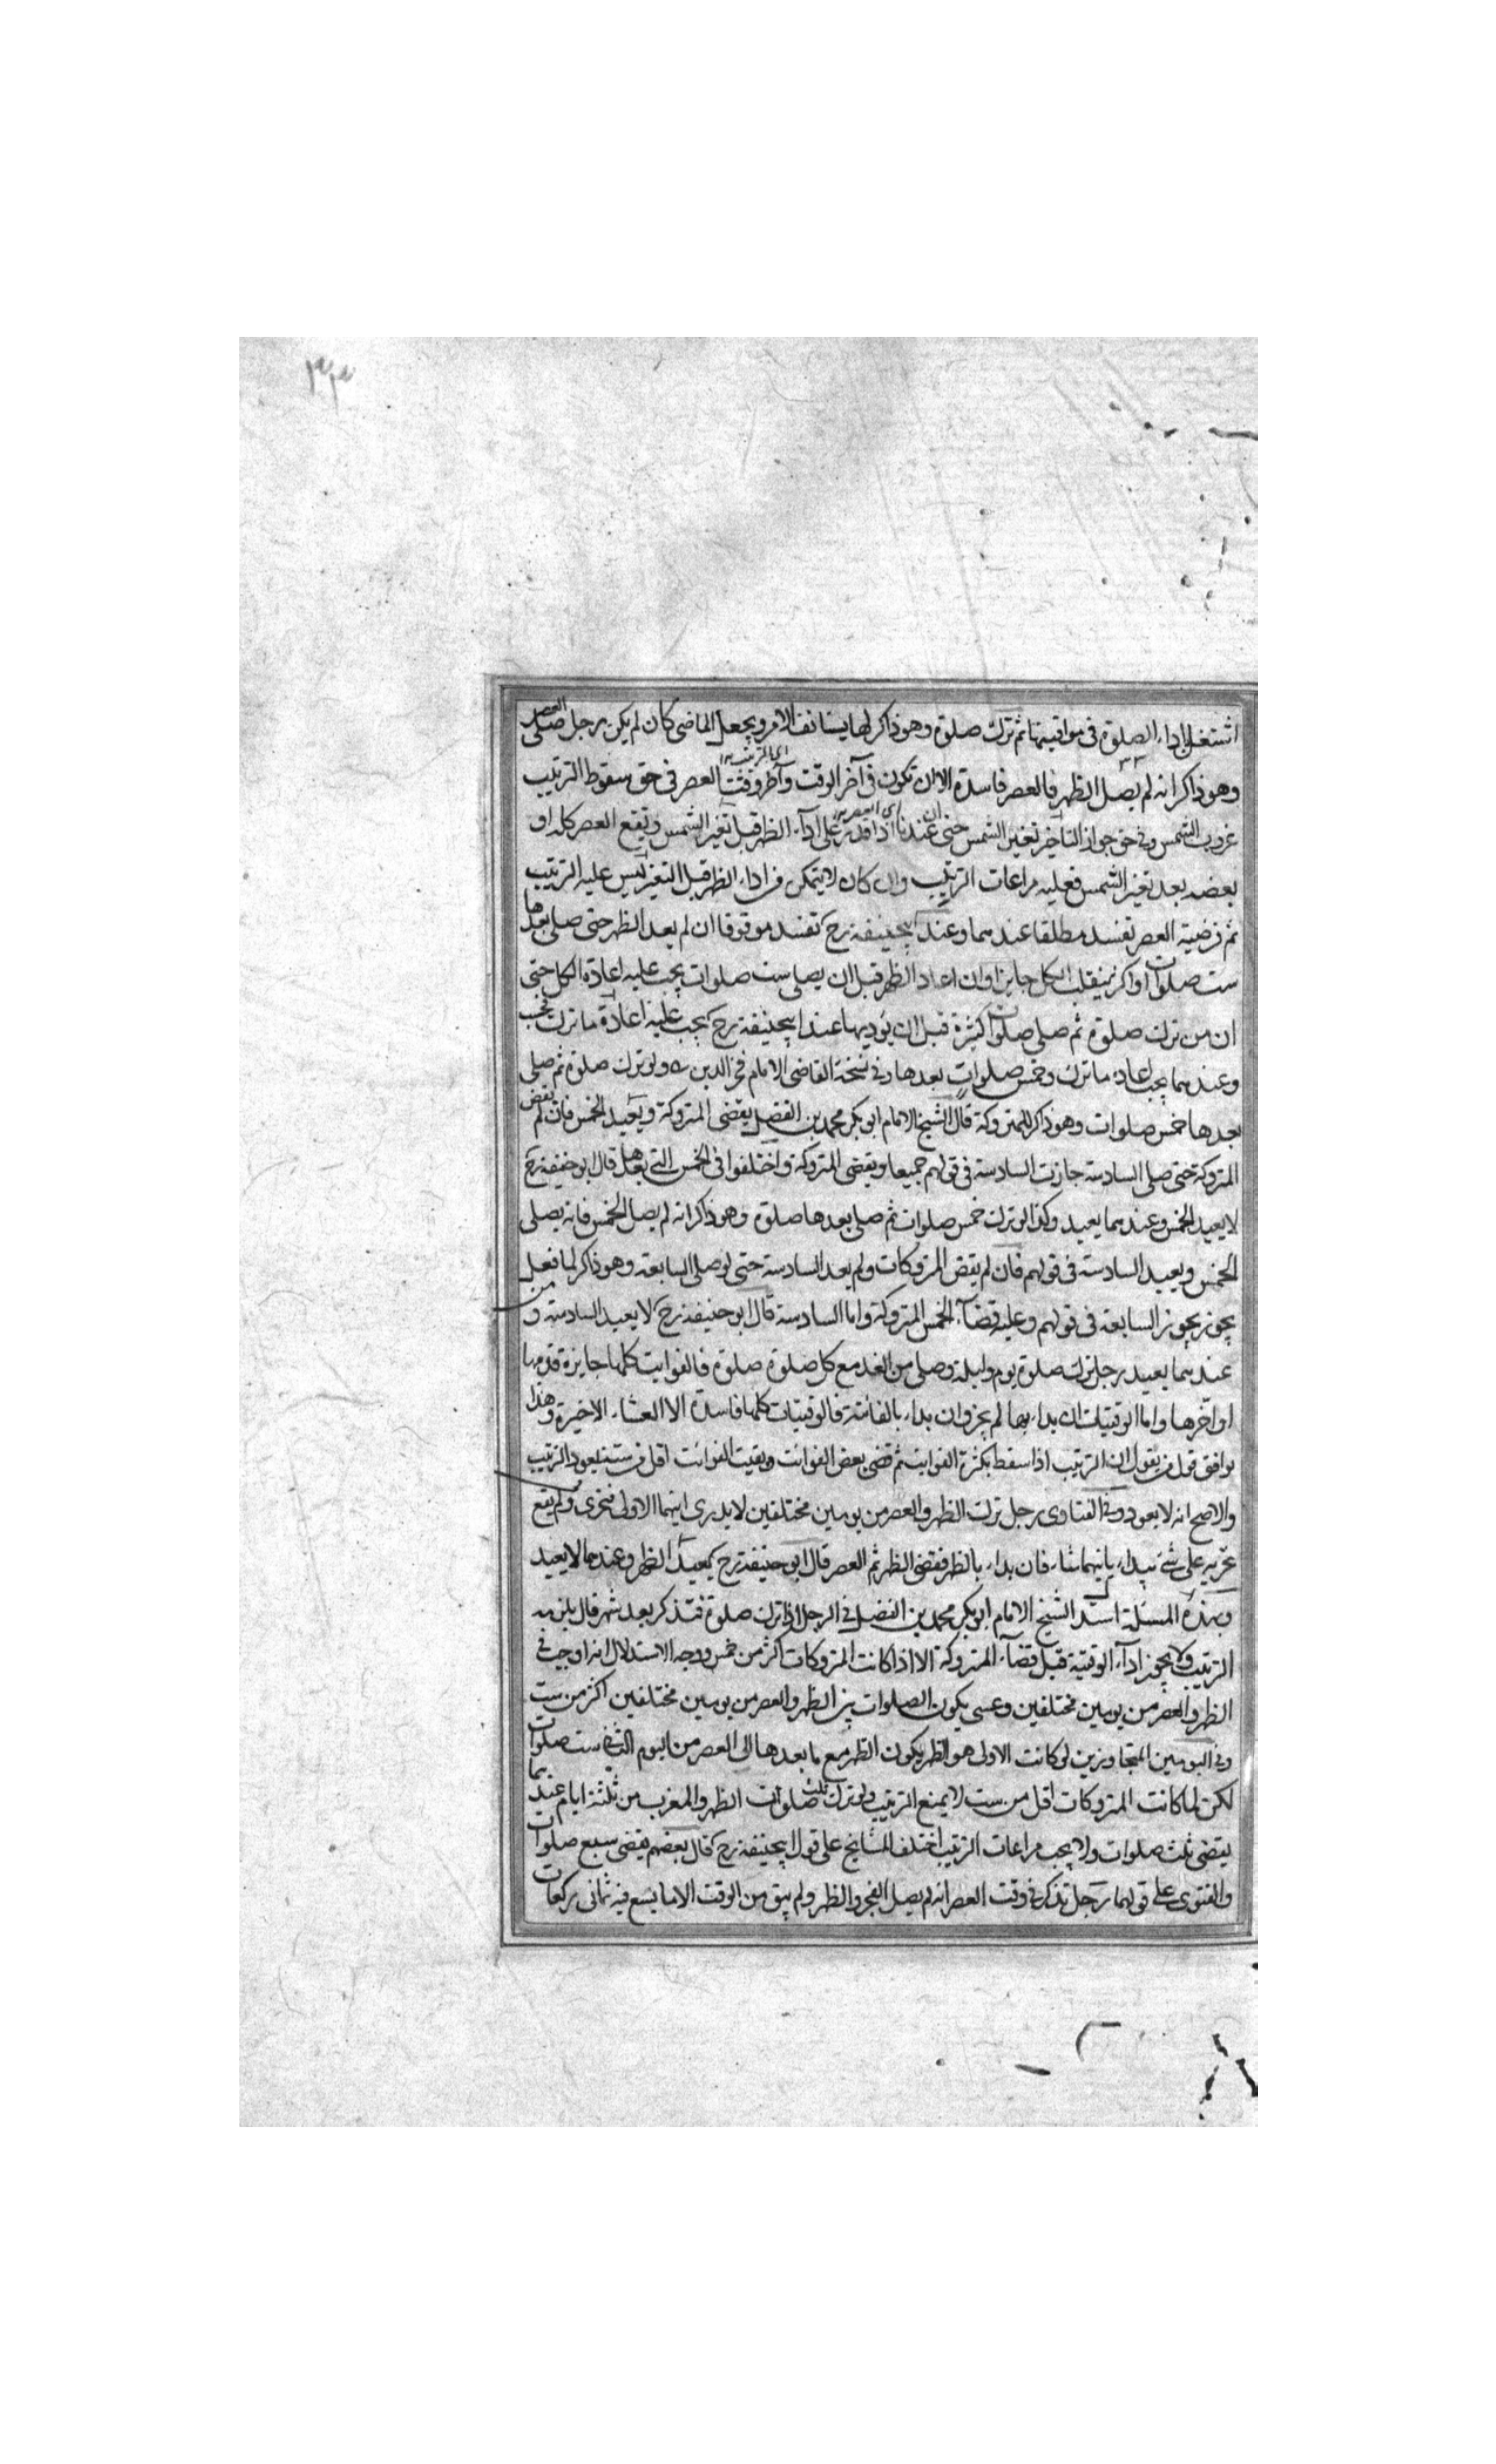 ٣٣
اشتغل باداء الصلوة فى مواقيتها ثم ترك صلوة وهو ذاكر لها يستانف الامر ويجعل الماضى كان لم يكن رجل صلى العصر
وهو ذاكر انه لم يصل الظهر فالعصر فاسدة الا ان تكون فى آخر الوقت وآخر وقت العصر فى حق سقوط الترتيب
غروب الشمس وفى حق جواز التاخير تغير الشمس حتى ان عندنا اذا قدر على اداء الظهر قبل تغير الشمس وتقع العصر كله او
بعضه بعد تغير الشمس فعليه مراعات الترتيب وان كان لا يتمكن من اداء الظهر قبل التغير ليس عليه الترتيب
ثم فرضية العصر تفسد مطلقا عندهما وعند ابيحنيفة رح تفسد موقوفا ان لم يعد الظهر حتى صلى بعدها
ست صلوات او اكثر ينقلب الكل جايزا وان اعاد الظهر قبل ان يصلى ست صلوات يجب عليه اعادة الكل حتى
ان من ترك صلوة ثم صلى صلوات كثيرة قبل ان يؤديها عند ابيحنيفة رح يجب عليه اعادة ما ترك فحسب
وعندهما يجب اعادة ما ترك وخمس صلوات بعدها وفى نسخة القاضى الامام فخر الدين ولو ترك صلوة ثم صلى
بعدها خمس صلوات وهو ذاكر للمتروكة قال الشيخ الامام ابو بكر محمد بن الفضل يقضى المتروكة ويعيد الخمس فان لم يقض
المتروكة حتى صلى السادسة جازت السادسة فى قولهم جميعا ويقضى المتروكة واختلفوا فى الخمس التى بعدها قال ابو حنيفة رح
لا يعيد الخمس وعندهما يعيد وكذا لو ترك خمس صلوات ثم صلى بعدها صلوة وهو ذاكر انه لم يصل الخمس فانه يصلى
الخمس ويعيد السادسة فى قولهم فان لم يقض المتروكات ولم يعد السادسة حتى لو صلى السابعة وهو ذاكر لما فعل
يجوز السابعة فى قولهم وعليه قضاء الخمس المتروكة واما السادسة قال ابو حنيفة رح لا يعيد السادسة و
عندهما يعيد رجل ترك صلوة يوم وليلة وصلى من الغد مع كل صلوة صلوة فالفوايت كلها جايزة قدمها
او اخرها واما الوقتيات ان بداء بها لم يجز وان بداء بالفائتة فالوقتيات كلها فاسدة الا العشاء الاخيرة وهذا
يوافق قول من يقول ان الترتيب اذا سقط بكثرة الفوايت ثم قضى بعض الفوائت وبقيت الفوائت اقل من ستة يعود الترتيب
والاصح انه لا يعود وفى الفتاوى رجل ترك الظهر والعصر من يومين مختلفين لا يدرى ايتهما الاولى فتحرى ولم يقع
تحريه على شئ يبداء بايتهما شاء فان بداء بالظهر فقضى الظهر ثم العصر قال ابو حنيفة رح يعيد الظهر وعندهما لا يعيد
وبهذه المسئلة استدل الشيخ الامام ابو بكر محمد بن الفضل فى الرجل اذا ترك صلوة فتذكر بعد شهر قال يلزمه
الترتيب ولا يجوز اداء الوقتية قبل قضاء المتروكة الا اذا كانت المتروكات اكثر من خمس ووجه الاستدلال انه اوجب فى
الظهر والعصر من يومين مختلفين وعسى يكون الصلوات بين الظهر والعصر من يومين مختلفين اكثر من ست
وفى اليومين المتجاوزين لو كانت الاولى هو الظهر يكون الظهر مع ما بعدها الى العصر من اليوم الثانى ست صلوات
لكن لما كانت المتروكات اقل من ست لا يمنع الترتيب ولو ترك ثلث صلوات الظهر والمغرب من ثلثة ايام عندهما
يقضى ثلث صلوات ولا يجب مراعات الترتيب اختلف المشايخ على قول ابيحنيفة رح قال بعضهم يقضى سبع صلوات
والفتوى على قولهما رجل تذكر فى وقت العصر انه لم يصل الفجر والظهر ولم يبق من الوقت الا ما يسع فيه ثمانى ركعات